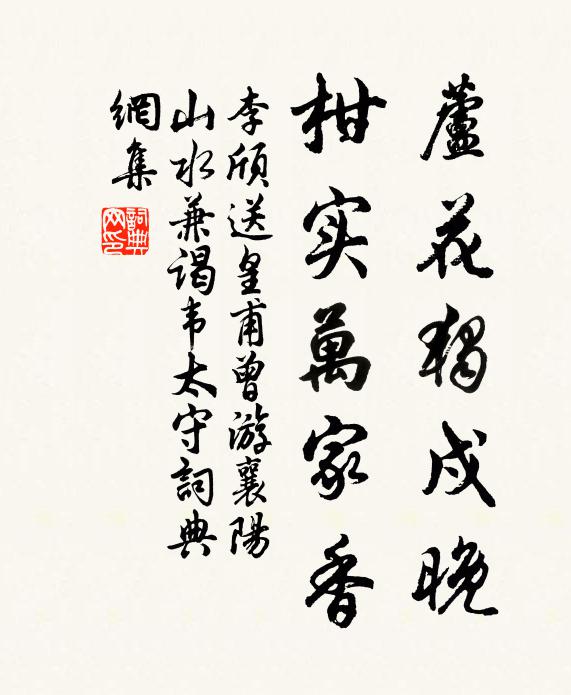 蘆花独戍晚
柑实萬家香
李颀送皇甫曾游襄陽
山水兼谒韦太守詞典
網集
詞典网印